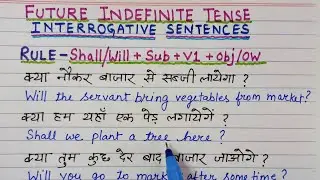 FUTURE INDEFINITE TENSE
INTERROGATIVE SENTENCES
RULE - Shall/Will + Sub + V1 + Obj/OW
क्या नौकर बाजार से सब्जी लायेगा ?
Will the servant bring vegetables from market?
क्या हम यहाँ एक पेड़ लगायेगें ?
Shall we plant a tree here ?
क्या तुम कुछ देर बाद बाजार जाओगे ?
Will you go to market after some time ?